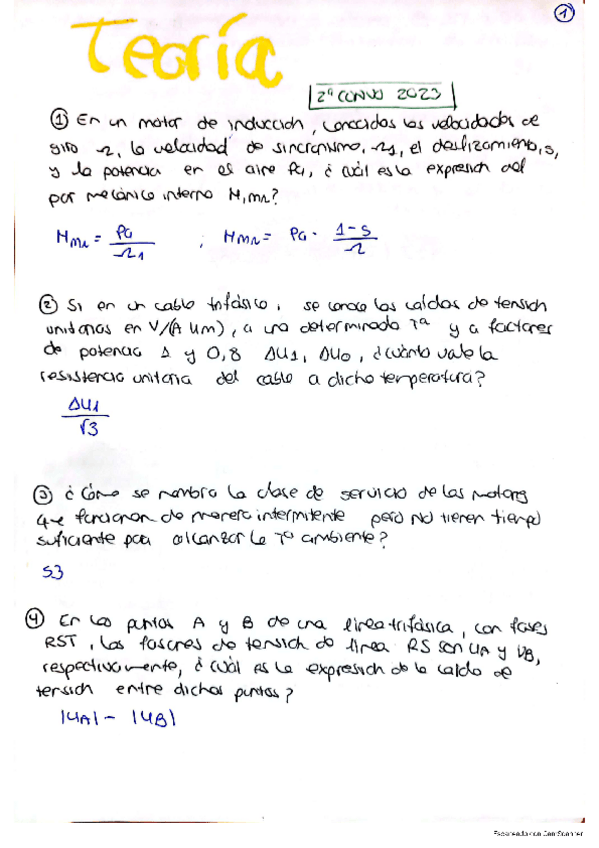 1
Teoría
2ª CONVO 2023
① En un motor de inducción, conocidas las velocidades de
giro Ω, la velocidad de sincronismo, Ω1, el deslizamiento, s,
y la potencia en el aire Pa, ¿cuál es la expresión del
par mecánico interno M,mi?
Mmi = Pa/Ω1 ; Mmi = Pa · 1-s/Ω
② Si en un cable trifásico, se conoce las caídas de tensión
unitarias en V/(A km), a una determinada Tª y a factores
de potencia 1 y 0,8 ΔU1, ΔU0, ¿cuánto vale la
resistencia unitaria del cable a dicho temperatura?
ΔU1/√3
③ ¿Cómo se nombra la clase de servicio de los motores
que funcionan de manera intermitente pero NO tienen tiempo
suficiente para alcanzar la Tª ambiente?
S3
④ En los puntos A y B de una línea trifásica, con fases
RST, los fasores de tensión de línea RS son UA y UB,
respectivamente, ¿cuál es la expresión de la caída de
tensión entre dichos puntos?
|UA| - |UB|
Escaneado con CamScanner